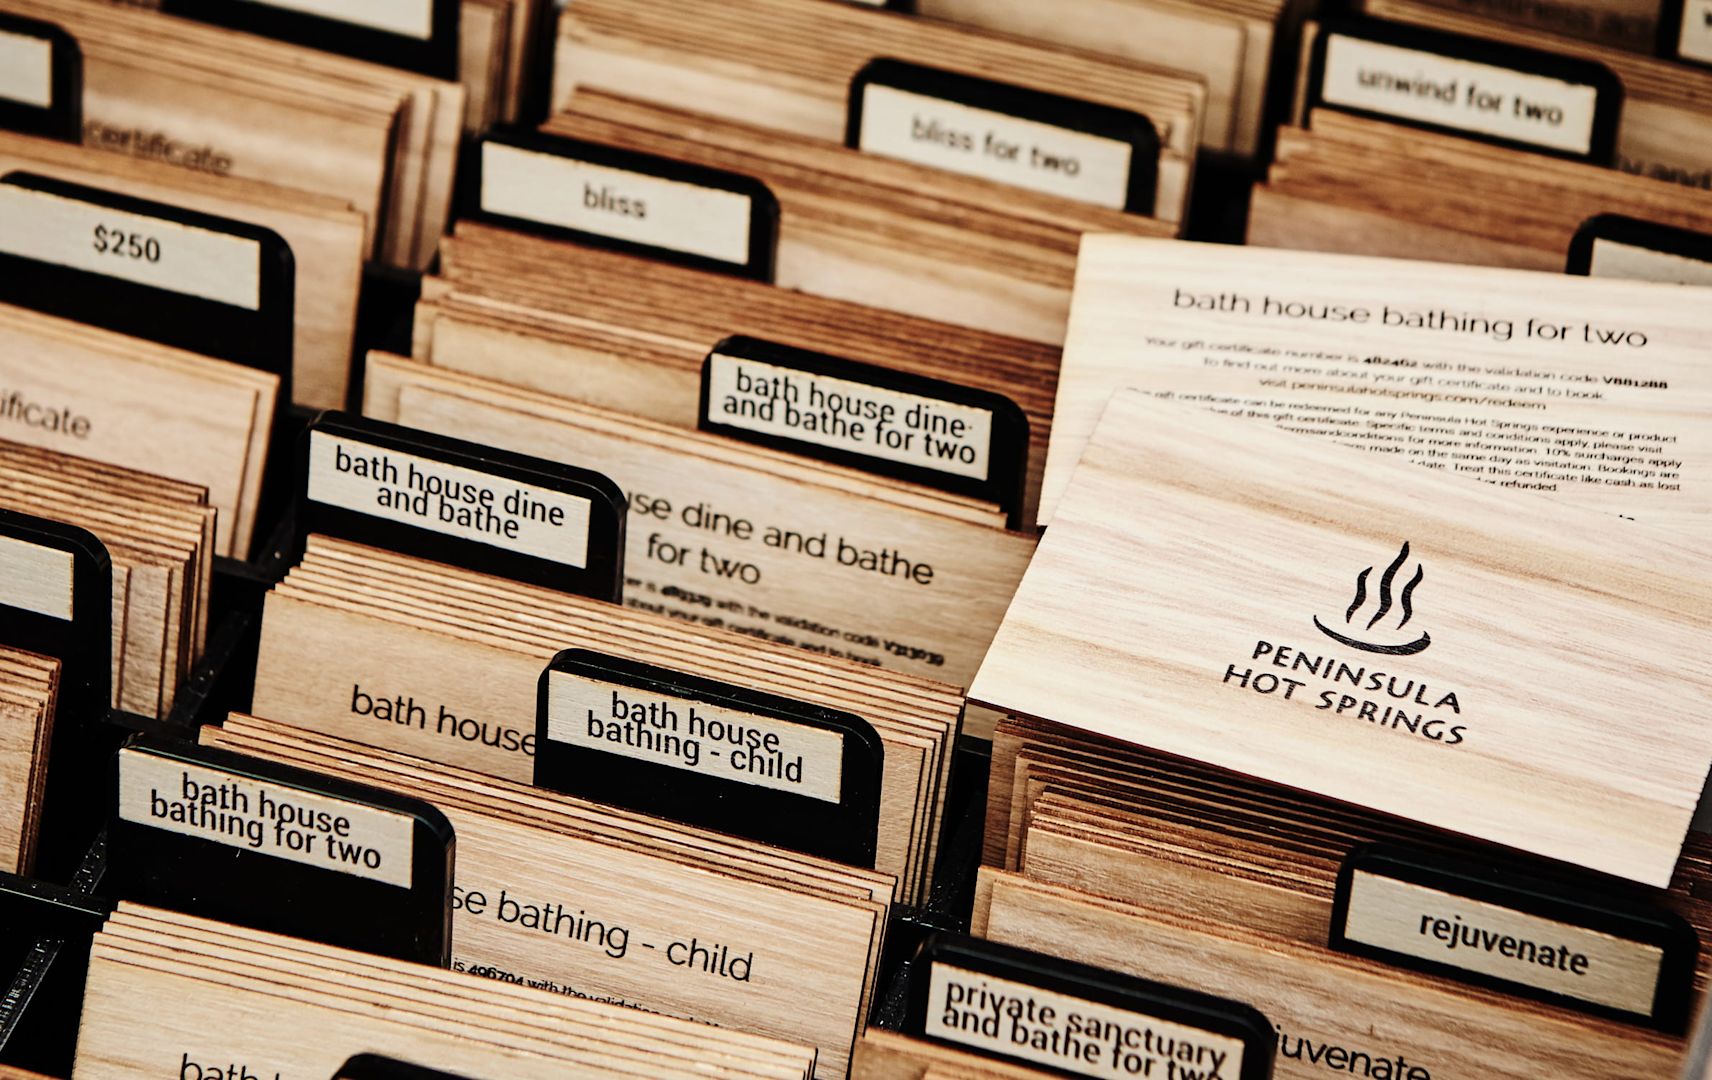 unwind for two
bliss for two
certificate
bliss
$250
bath house bathing for two
Your gift certificate number is 482462 with the validation code V881288
To find out more about your gift certificate and to book
visit peninsulahotsprings.com/redeem
gift certificate can be redeemed for any Peninsula Hot Springs experience or product
of this gift certificate. Specific terms and conditions apply, please visit
termsandconditions for more information. 10% surcharges apply
made on the same day as visitation. Bookings are
date. Treat this certificate like cash as lost
or refunded.
bath house dine
and bathe for two
ificate
bath house dine
and bathe
use dine and bathe
for two
with the validation code
about your gift certificate and to book
PENINSULA
HOT SPRINGS
bath house
bath house
bathing - child
bath house
bathing for two
se bathing - child
is 496704 with the validation
rejuvenate
private sanctuary
and bathe for two
juvenate
bath